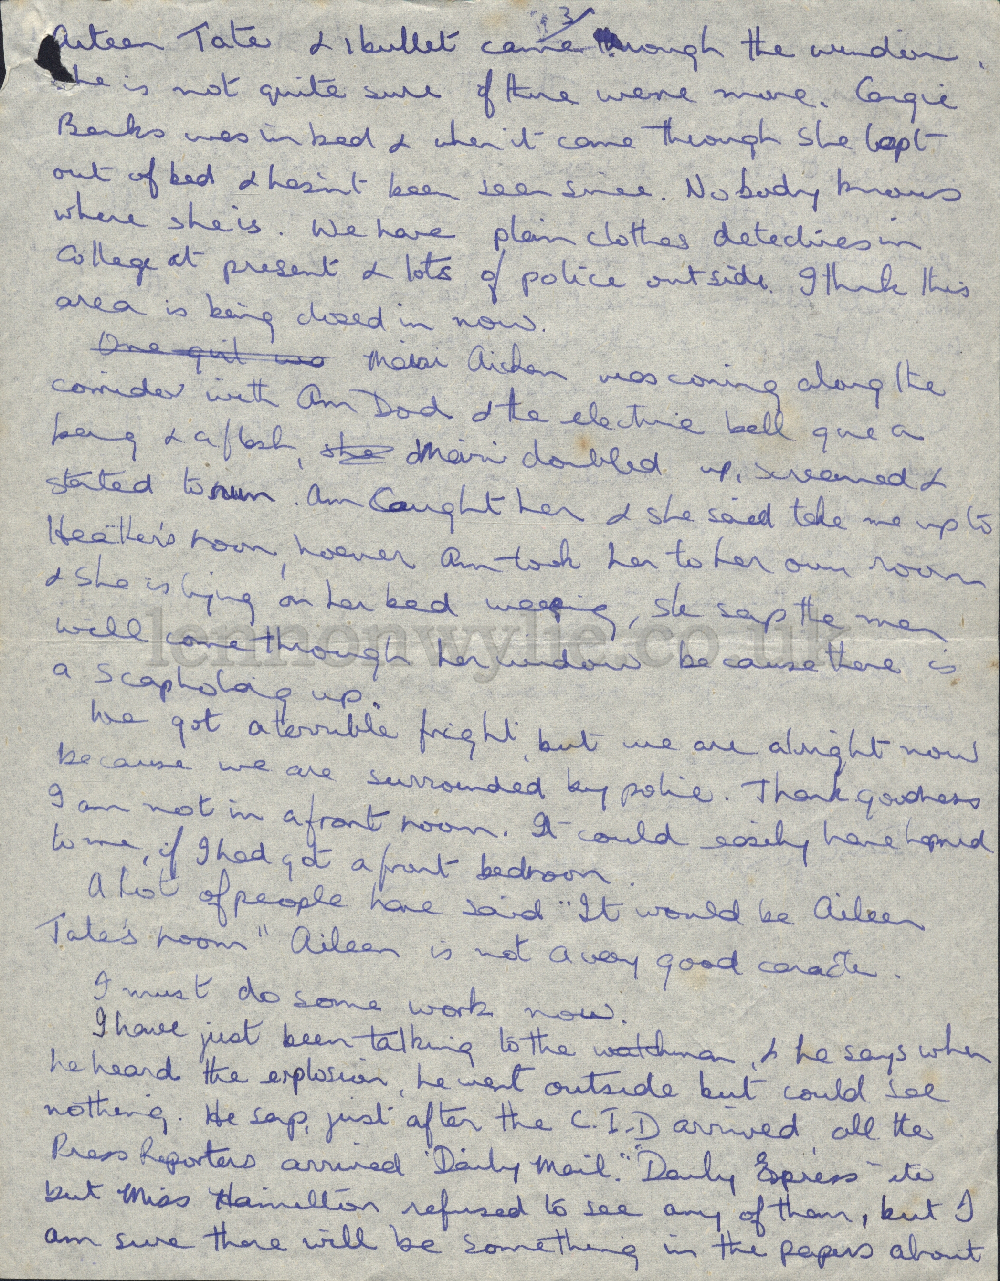 3/
Aileen Tate & 1 bullet came through the window.
She is not quite sure if there were more.
Banks was in bed & when it came through she lept
out of bed & hasint been seen since. Nobody knows
where she is. We have plain clothes detectives in
College at present & lots of police outside. I think this
area is being closed in now.
One girl was Aichen was coming along the
corridor with Ann Dod & the electric bell gave a
bang & a flash, she & Mairi doubled up, screamed &
started to run. Ann Caught her & she said take me up to
Heather's room, hoever Ann took her to her own room
& she is lying on her bed weeping, she says the men
will come through her window because there is
a scapholding up.
We got a terrible fright, but we are alright now
because we are surrounded by police. Thank goodness
I am not in a front room. It could easily have happned
to me, if I had got a front bedroom.
A lot of people have said "It would be Aileen
Tate's room" Aileen is not a very good caracter.
I must do some work now.
I have just been talking to the watchman, & he says when
he heard the explosion, he went outside but could see
nothing. He says, just after the C.I.D arrived all the
Press Reporters arrived "Daily Mail." "Daily Express" etc
but Miss Hamilton refused to see any of them, but I
am sure there will be something in the papers about
lennonwylie.co.uk